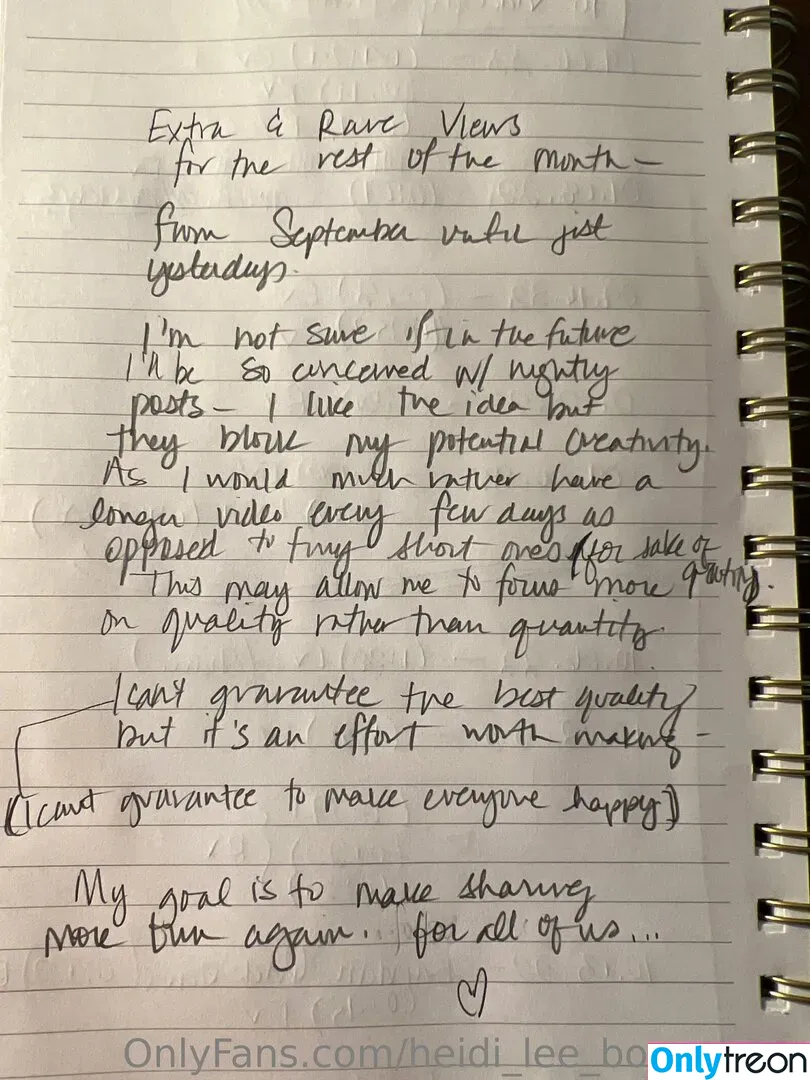 Extra & Rare Views
for the rest of the month –
from September until just
yesterday.
I'm not sure if in the future
I'll be so concerned w/ nightly
posts – I like the idea but
they block my potential creativity.
As I would much rather have a
longer video every few days as
opposed to tiny short ones (for sake of
quantity.
This may allow me to focus more
on quality rather than quantity.
I can't guarantee the best quality
but it's an effort worth making –
(I can't guarantee to make everyone happy)
My goal is to make sharing
more fun again. for all of us...
OnlyFans.com/heidi_lee_bo
Onlytreon